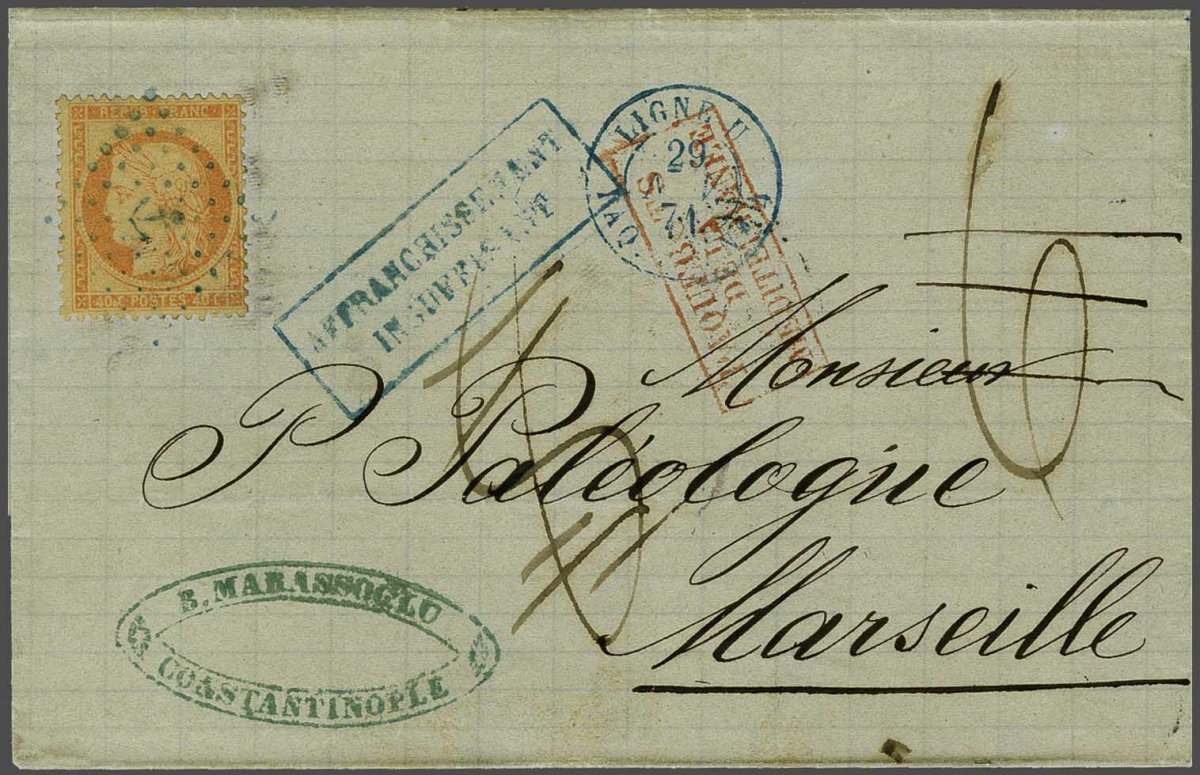 REPUB FRANC
40 C POSTES 40 C
AFFRANCHISSEMENT
INSUFFISANT
LIGNE U
29
71
PAQ
Monsieur
P Paléologue
Marseille
B. MARASSOGLU
CONSTANTINOPLE